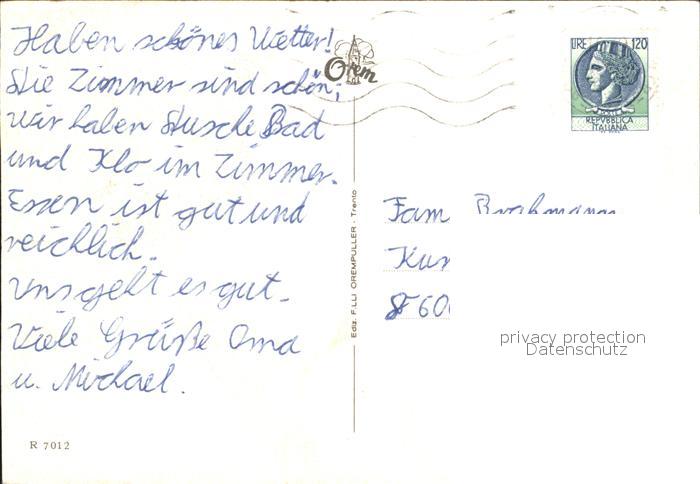 Haben schönes Wetter!
Die Zimmer sind schön,
wir haben Dusche Bad
und Klo im Zimmer.
Essen ist gut und
reichlich.
uns geht es gut.
Viele Grüße Oma
u. Michael.
R 7012
Orem
Ediz. F.LLI OREMPULLER - Trento
LIRE 120
REPVBBLICA
ITALIANA
Fam
privacy protection
Datenschutz